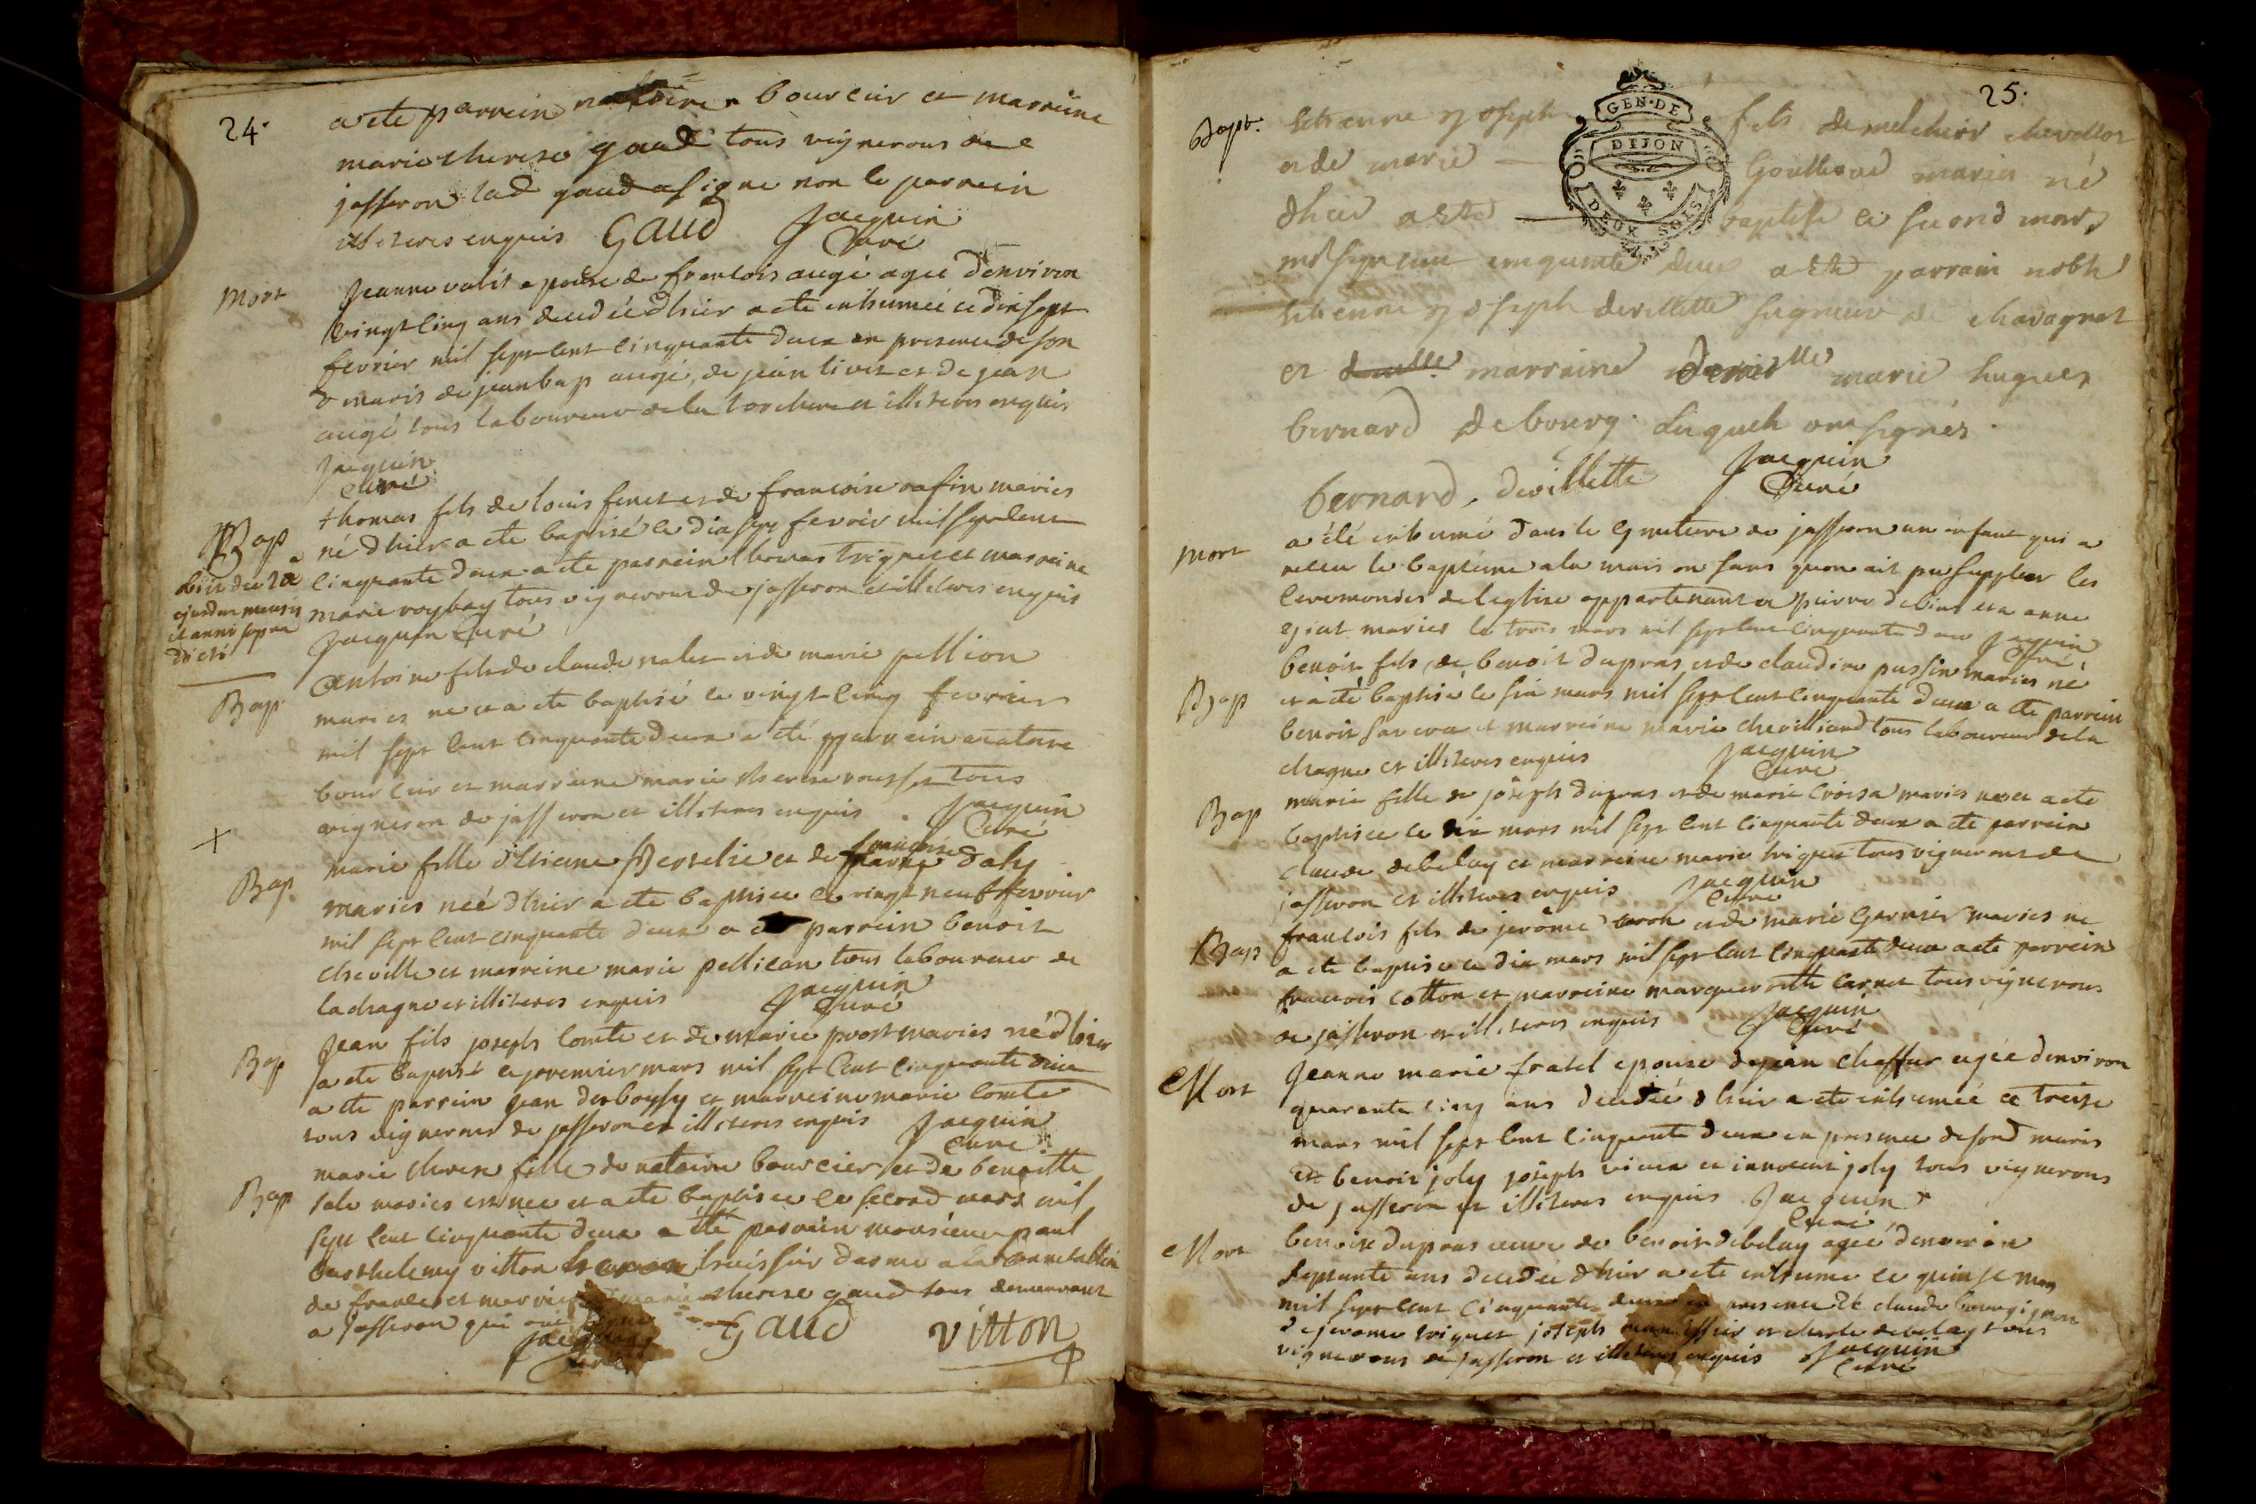 24.
a ete parrein notaire bourcier et marreine
marie therese gaud tous vignerons de
jasseron lad gaud a signe non le parrein
illiteres enquis Gaud Jacquin
Curé
Mort
Jeanne valit epouse de francois augé agee denviron
vingt cinq ans decedée dhier a ete inhumée ce dix sept
fevrier mil sept cent cinquante deux en presence de son
maris de jean bap augé, de jean livet et de jean
augé tous laboureur de la et illiteres enquis
Jacquin
Curé
Bap
thomas fils de louis feret et de francoise rafin maries
né dhier a ete baptisé le dix sept fevrier mil sept cent
cinquante deux a ete parrein thomas triquet et marreine
marie roybay tous vignerons de jasseron illiteres enquis
Jacquin Curé
obiit die 22a
ejusdem mensis
et anni supra
dicti
Bap
Antoine fils de claude valet et de marie pellion
maries ne et a ete baptisé le vingt cinq fevrier
mil sept cent cinquante deux a été parrein anatoire
bourcier et marreine marie therese rousset tous
vigneron de jasseron et illiteres enquis Jacquin
Curé
Bap
marie fille détienne Berthelie et de francoise daly
maries née dhier a ete baptisee le vingt neuf fevrier
mil sept cent cinquante deux a ete parrein benoit
cheville et marreine marie pellican tous laboureur de
la chagne et illiteres enquis Jacquin
Curé
Bap
Jean fils joseph comte et de marie prost maries né dhier
a ete baptisé le premier mars mil sept cent cinquante deux
a ete parrein jean desboyssy et marreine marie comte
tous vignerons de jasseron et illiteres enquis Jacquin
Curé
Bap
marie therese fille de natoire bourcier et de benoitte
sale maries est nee et a ete baptisee le second mars mil
sept cent cinquante deux a été parrein monsieur paul
barthelemy vitton huissier darme a la connetablie
de france et marreine marie therese gaud tous demeurant
a jasseron qui ont signe Gaud vitton
Jacquin
Curé
25.
Bapt.
Etienne joseph fils de melchior chevallot
et de marie Goullioud maries né
dhier a ete baptisé le second mars
mil sept cent cinquante deux a ete parrain noble
Etienne joseph devillette seigneur de chavagnat
et marraine demoiselle marie hugues
bernard de bourg. lesquels ont signés.
bernard, devillette Jacquin
Curé
mort
a été inhumé dans le cymetiere de jasseron un enfant qui a
receu le baptéme a la maison sans quon ait pu suppleer les
ceremonies de leglise appartenant a pierre debins et a anne
maries le trois mars mil sept cent cinquante deux Jacquin
Curé
Bap
benoit fils de benoit dupras et de claudine pussin maries ne
et a été baptisé le six mars mil sept cent cinquante deux a ete parrein
benoit et marreine marie chevilliard tous laboureur de la
chagne et illiteres enquis Jacquin
Curé
Bap
marie fille de joseph dupras et de marie croisa maries nee et a ete
baptisee le dix mars mil sept cent cinquante deux a ete parrein
claude debelay et marreine marie triquet tous vignerons de
jasseron et illiteres enquis Jacquin
Curé
Bap
francois fils de jerôme et de marie garnier maries ne
a ete baptise le dix mars mil sept cent cinquante deux a ete parrein
francois cotton et marreine marguerette carnet tous vignerons
de jasseron et illiteres enquis Jacquin
Curé
Mort
Jeanne marie fratel epouse de jean chaffur agée denviron
quarante cinq ans decedée dhier a ete inhumée ce treize
mars mil sept cent cinquante deux en presence de sond maris
de benoit joly joseph vieux et innocent joly tous vignerons
de jasseron et illiteres enquis Jacquin
Curé
Mort
benoite dupras veuve de benoit debelay agée denviron
septante ans decedée dhier a ete inhumée le quinze mars
mil sept cent cinquante deux en presence de claude bourgignon
de jerome triquet joseph et charle debelay tous
vignerons de jasseron et illiteres enquis Jacquin
Curé
GEN. DE
DIJON
DEUX SOLS